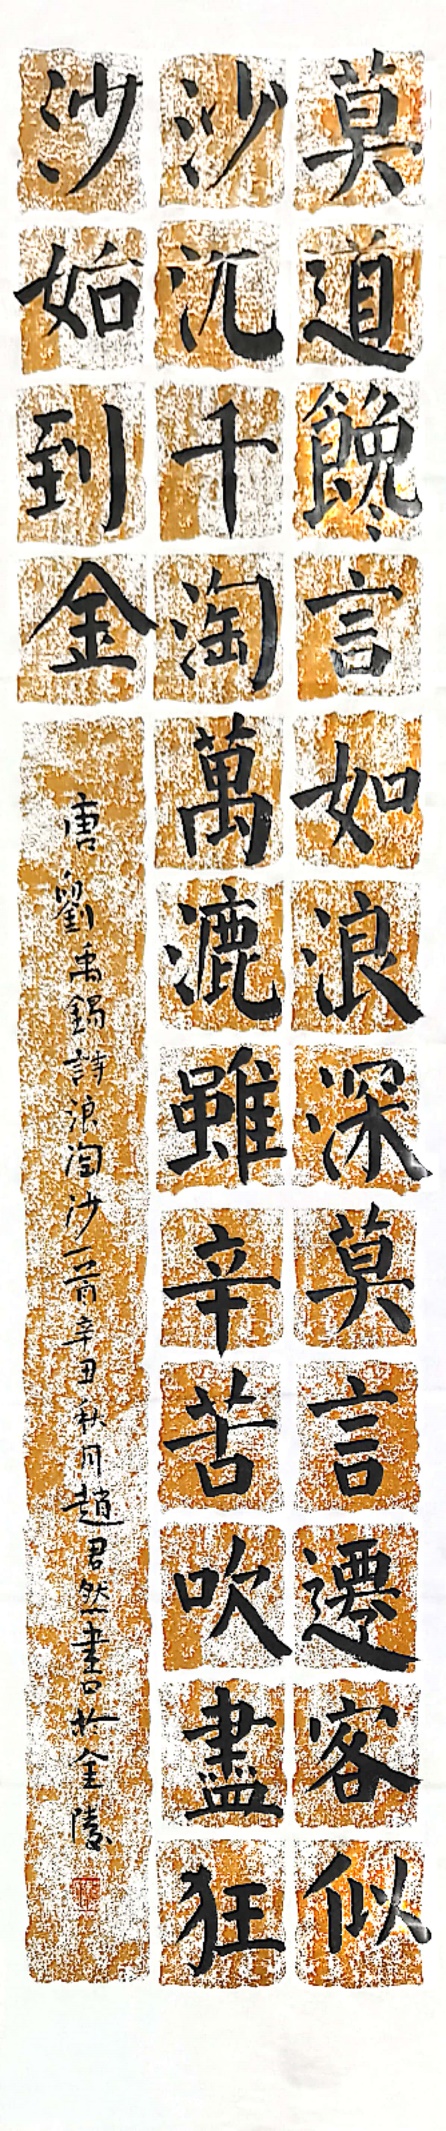 莫道饞言如浪深莫言遷客似
沙沉千淘萬漉雖辛苦吹盡狂
沙始到金
唐劉禹錫詩浪淘沙一首辛丑秋月趙君然書於金陵